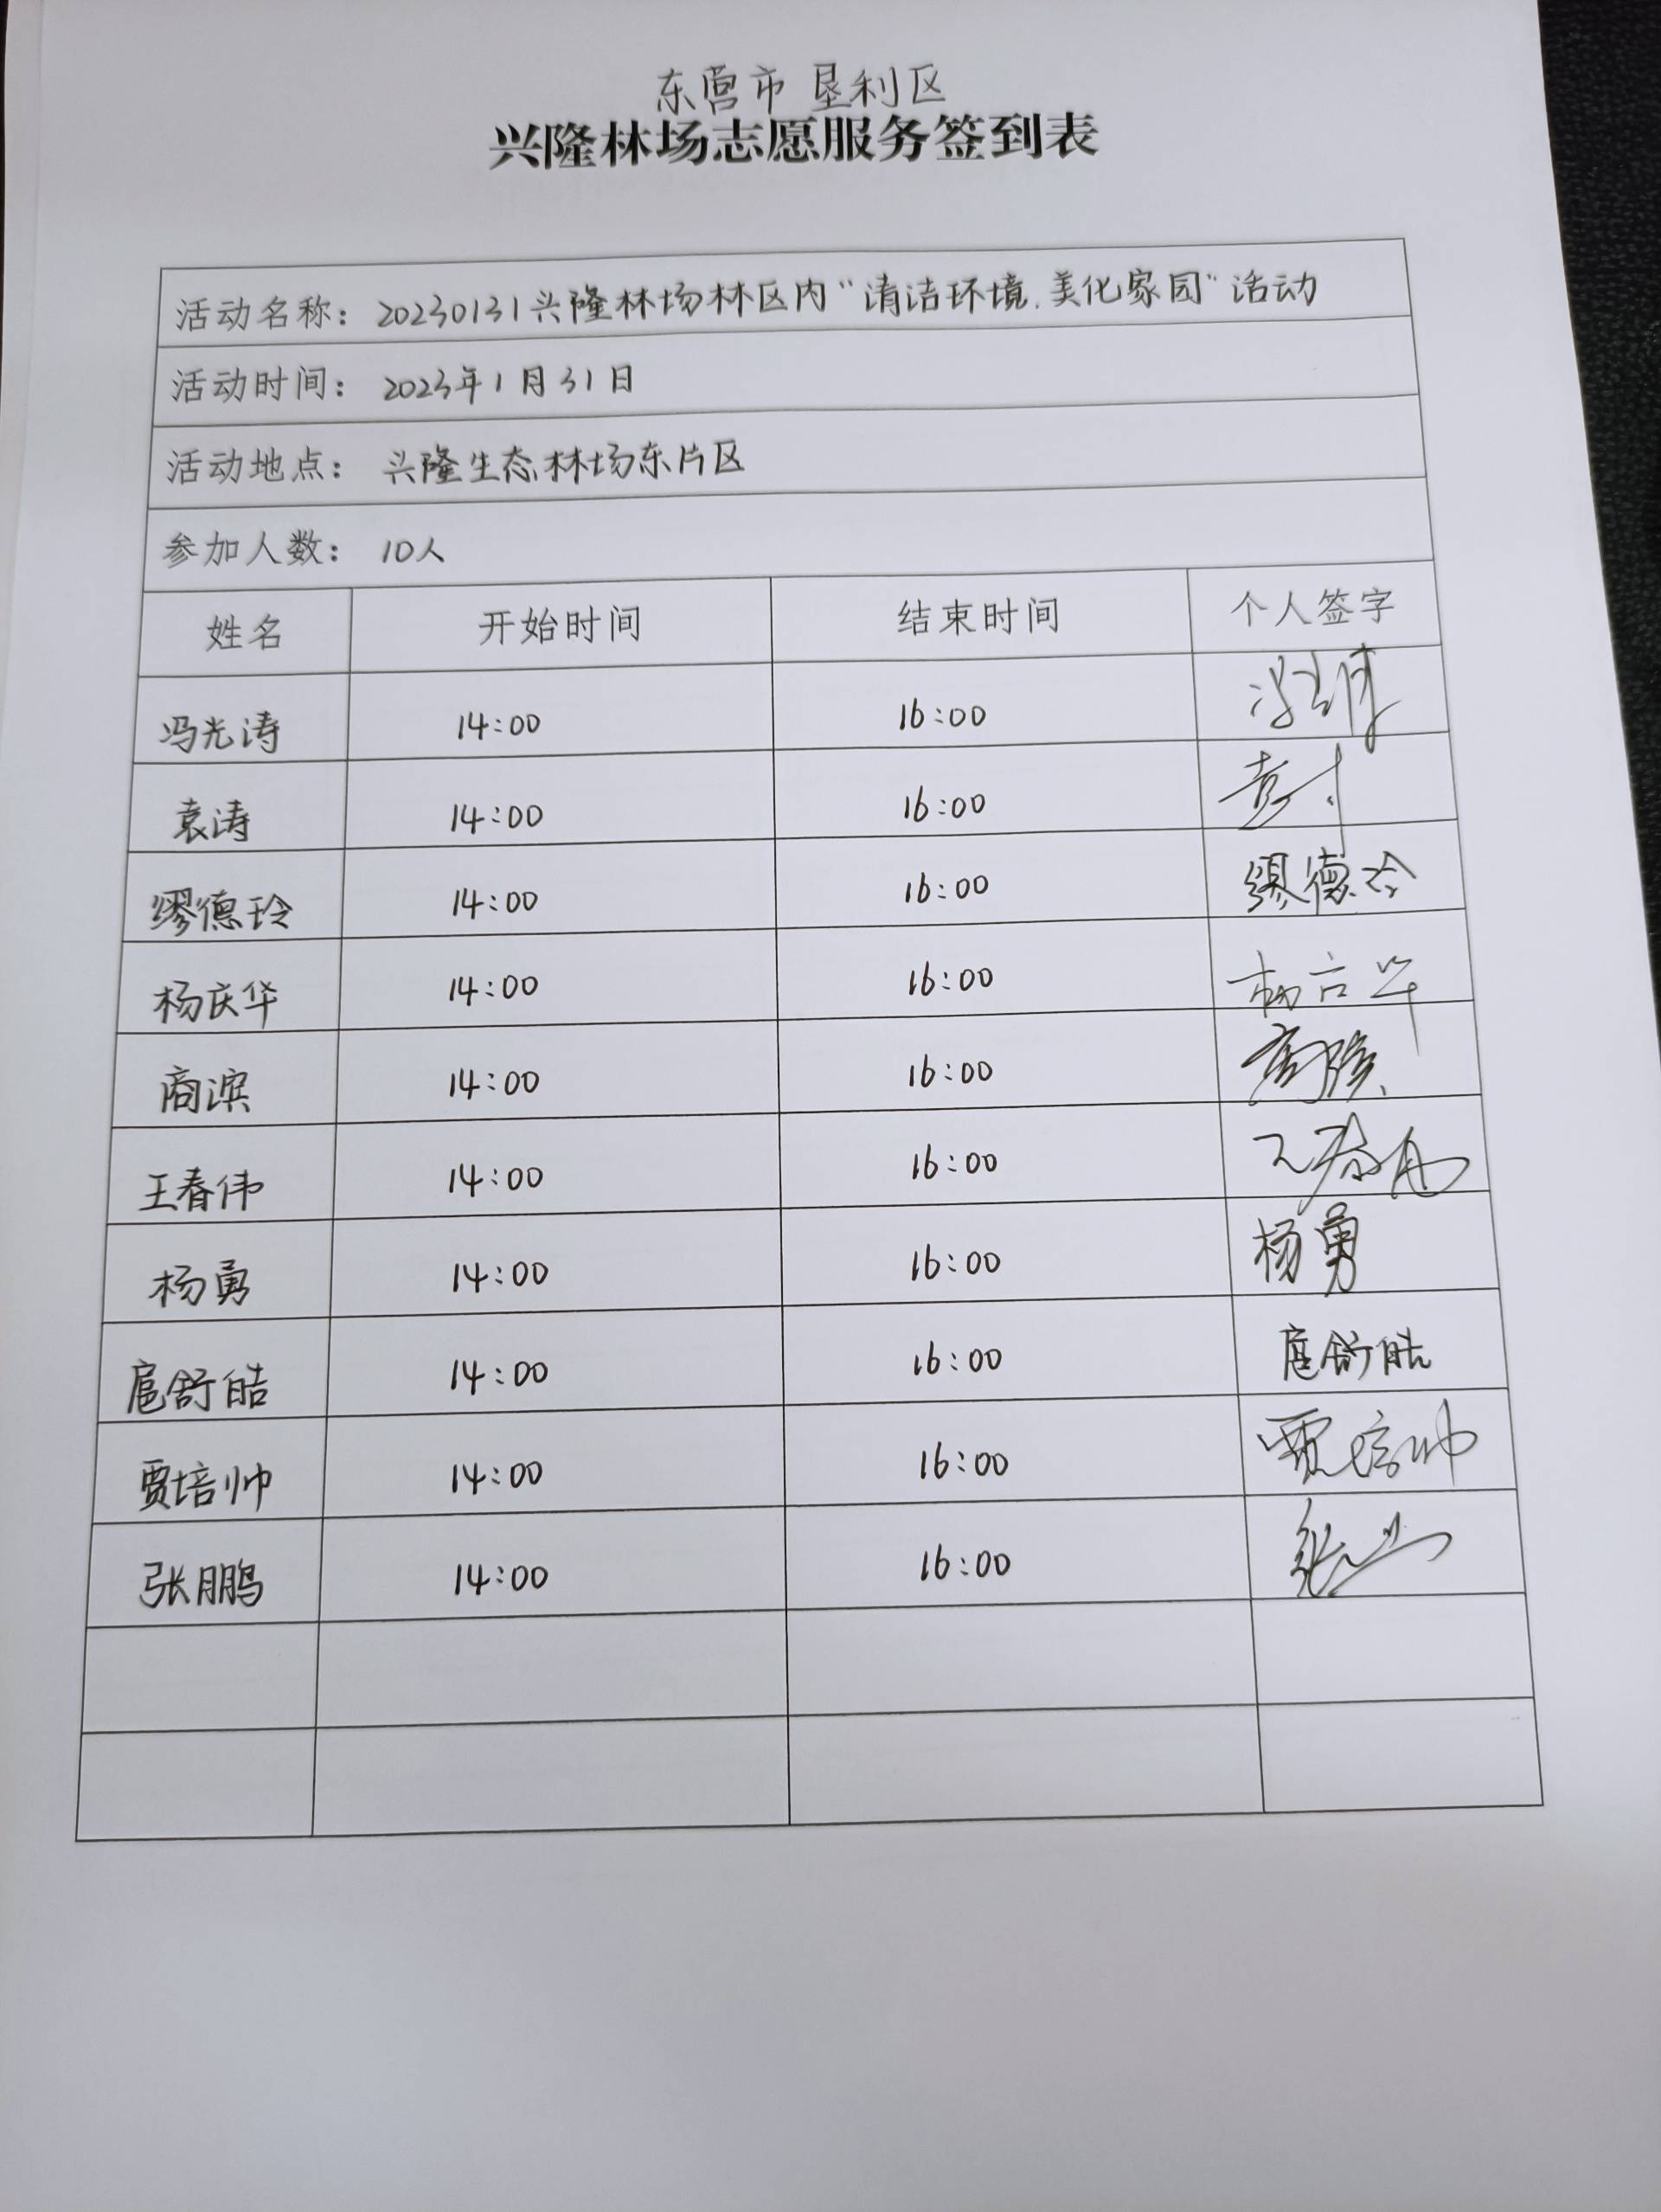 东营市 垦利区
兴隆林场志愿服务签到表
活动名称: 20230131兴隆林场林区内“清洁环境.美化家园”活动
活动时间: 2023年1月31日
活动地点: 兴隆生态林场东片区
参加人数: 10人
姓名 开始时间 结束时间 个人签字
冯光涛 14:00 16:00
袁涛 14:00 16:00
缪德玲 14:00 16:00 缪德玲
杨庆华 14:00 16:00 杨庆华
商滨 14:00 16:00 商滨
王春伟 14:00 16:00
杨勇 14:00 16:00 杨勇
扈舒皓 14:00 16:00 扈舒皓
贾培帅 14:00 16:00 贾培帅
张鹏 14:00 16:00